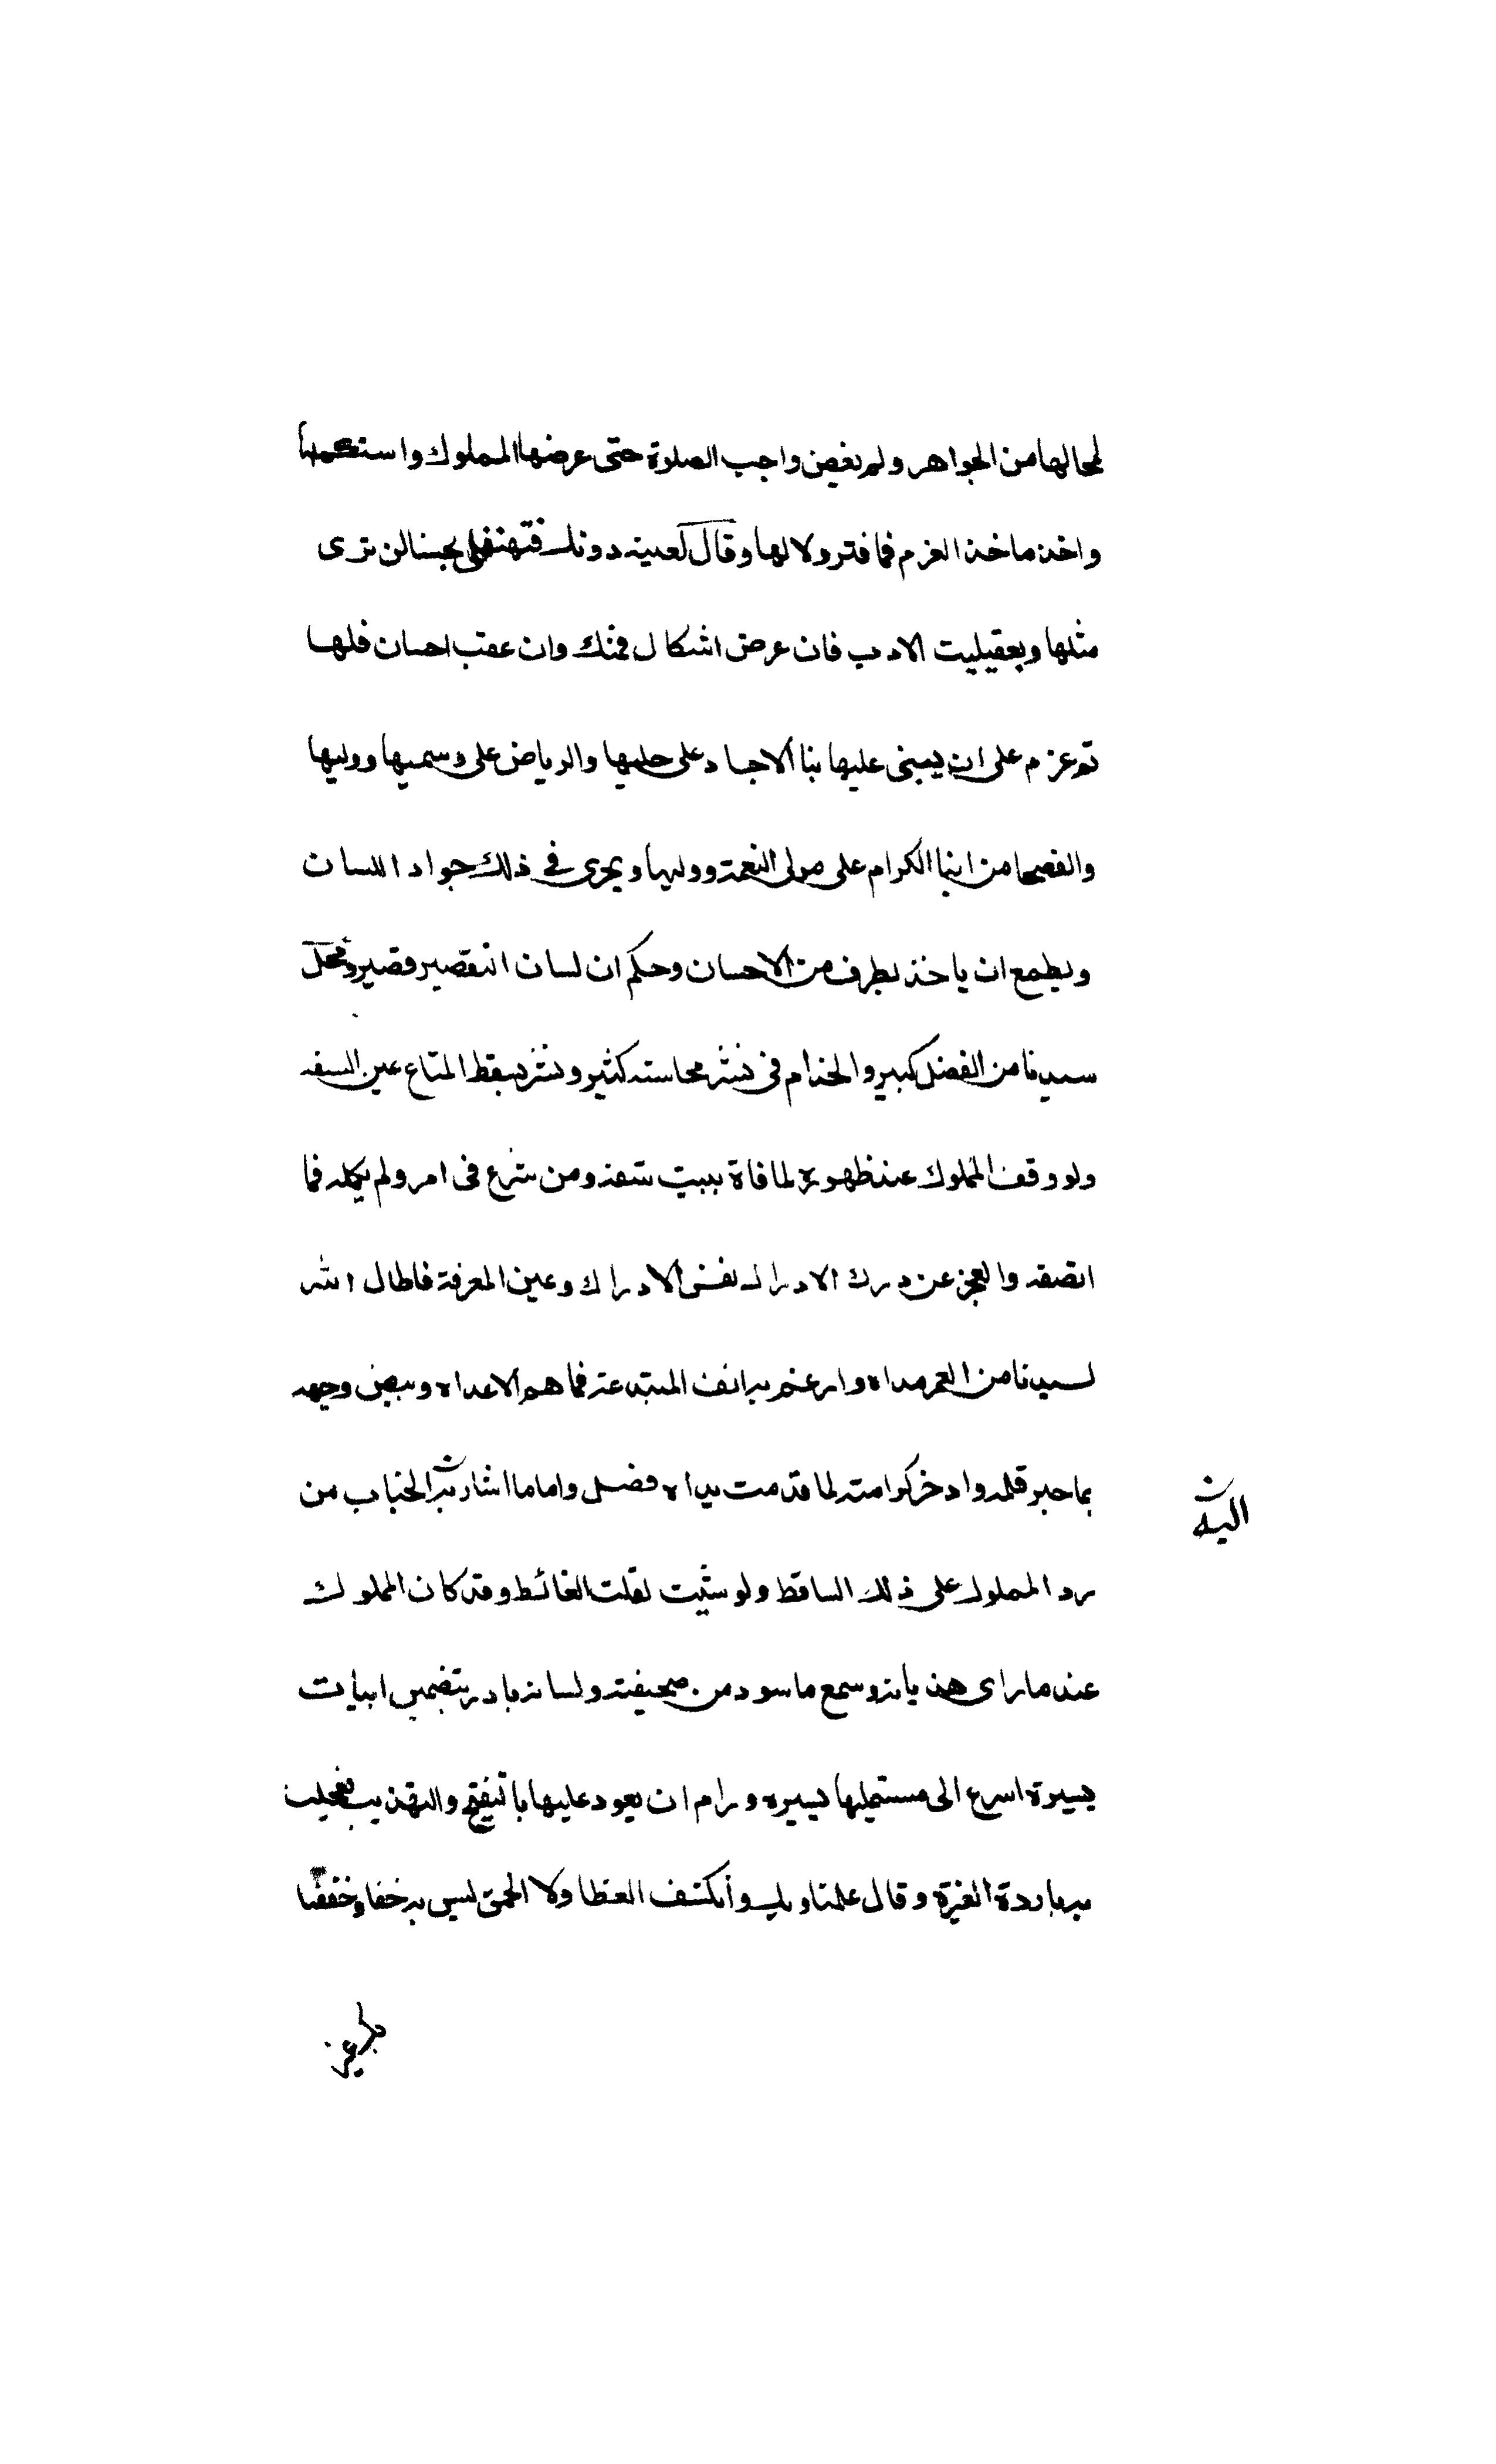 لمحالها من الجواهر ولم يغض واجب الصلوة حتى عرضها المملوك واستكملها
واخذ ماخذ العزم فما فتر ولا لها وقال لعينه دونك فتهنفلى بحسنا لن ترى
مثلها وبعقيليت الادب فان عرض اشكال فمنك وان عقب احسان فلها
ثم عزم على ان يبنى عليها بنا الاجساد على حليها والرياض على وسميها ووليها
والفصحا من ابنا الكرام على مولى النعمة ووليها ويجرى في ذلك جواد اللسان
ويطمع ان ياخذ بطرف من الاحسان وحكم ان لسان التقصير قصير ومحل
سيدنا من الفضل كبير والخدام فى نشر محاسنه كثير ونشر سقط المتاع عين السفه
ولو وقف المملوك عند ظهوره لما فاة ببيت شفه ومن شرع فى امر ولم يكمله فما
انصفه والعجز عن درك الادراك نفس الادراك وعين المعرفة فاطال الله
لسيدنا من العمر مداه وارغم به انف المبتدعة فما هم الاعداه وبيض وجهه
بما حبر قلمه وادخر كرامته لما قدمت يداه فصل واما ما اشارت به الجناب من
اليه
رد المملوك على ذلك الساقط ولو شيت لقلت الغائط وقد كان المملوك
عند ما راى هذيانه وسمع ما سود من صحيفته ولسانه بادر بتضمين ابيات
يسيرة اسرع الى مستمليها يسيره ورام ان يعود عليها با تنيقح والتهذيب فعجلت
به باردة الغيرة وقال علمتاويلى وانكشف الغطا ولا الحمق ليس به خفا وخففنا